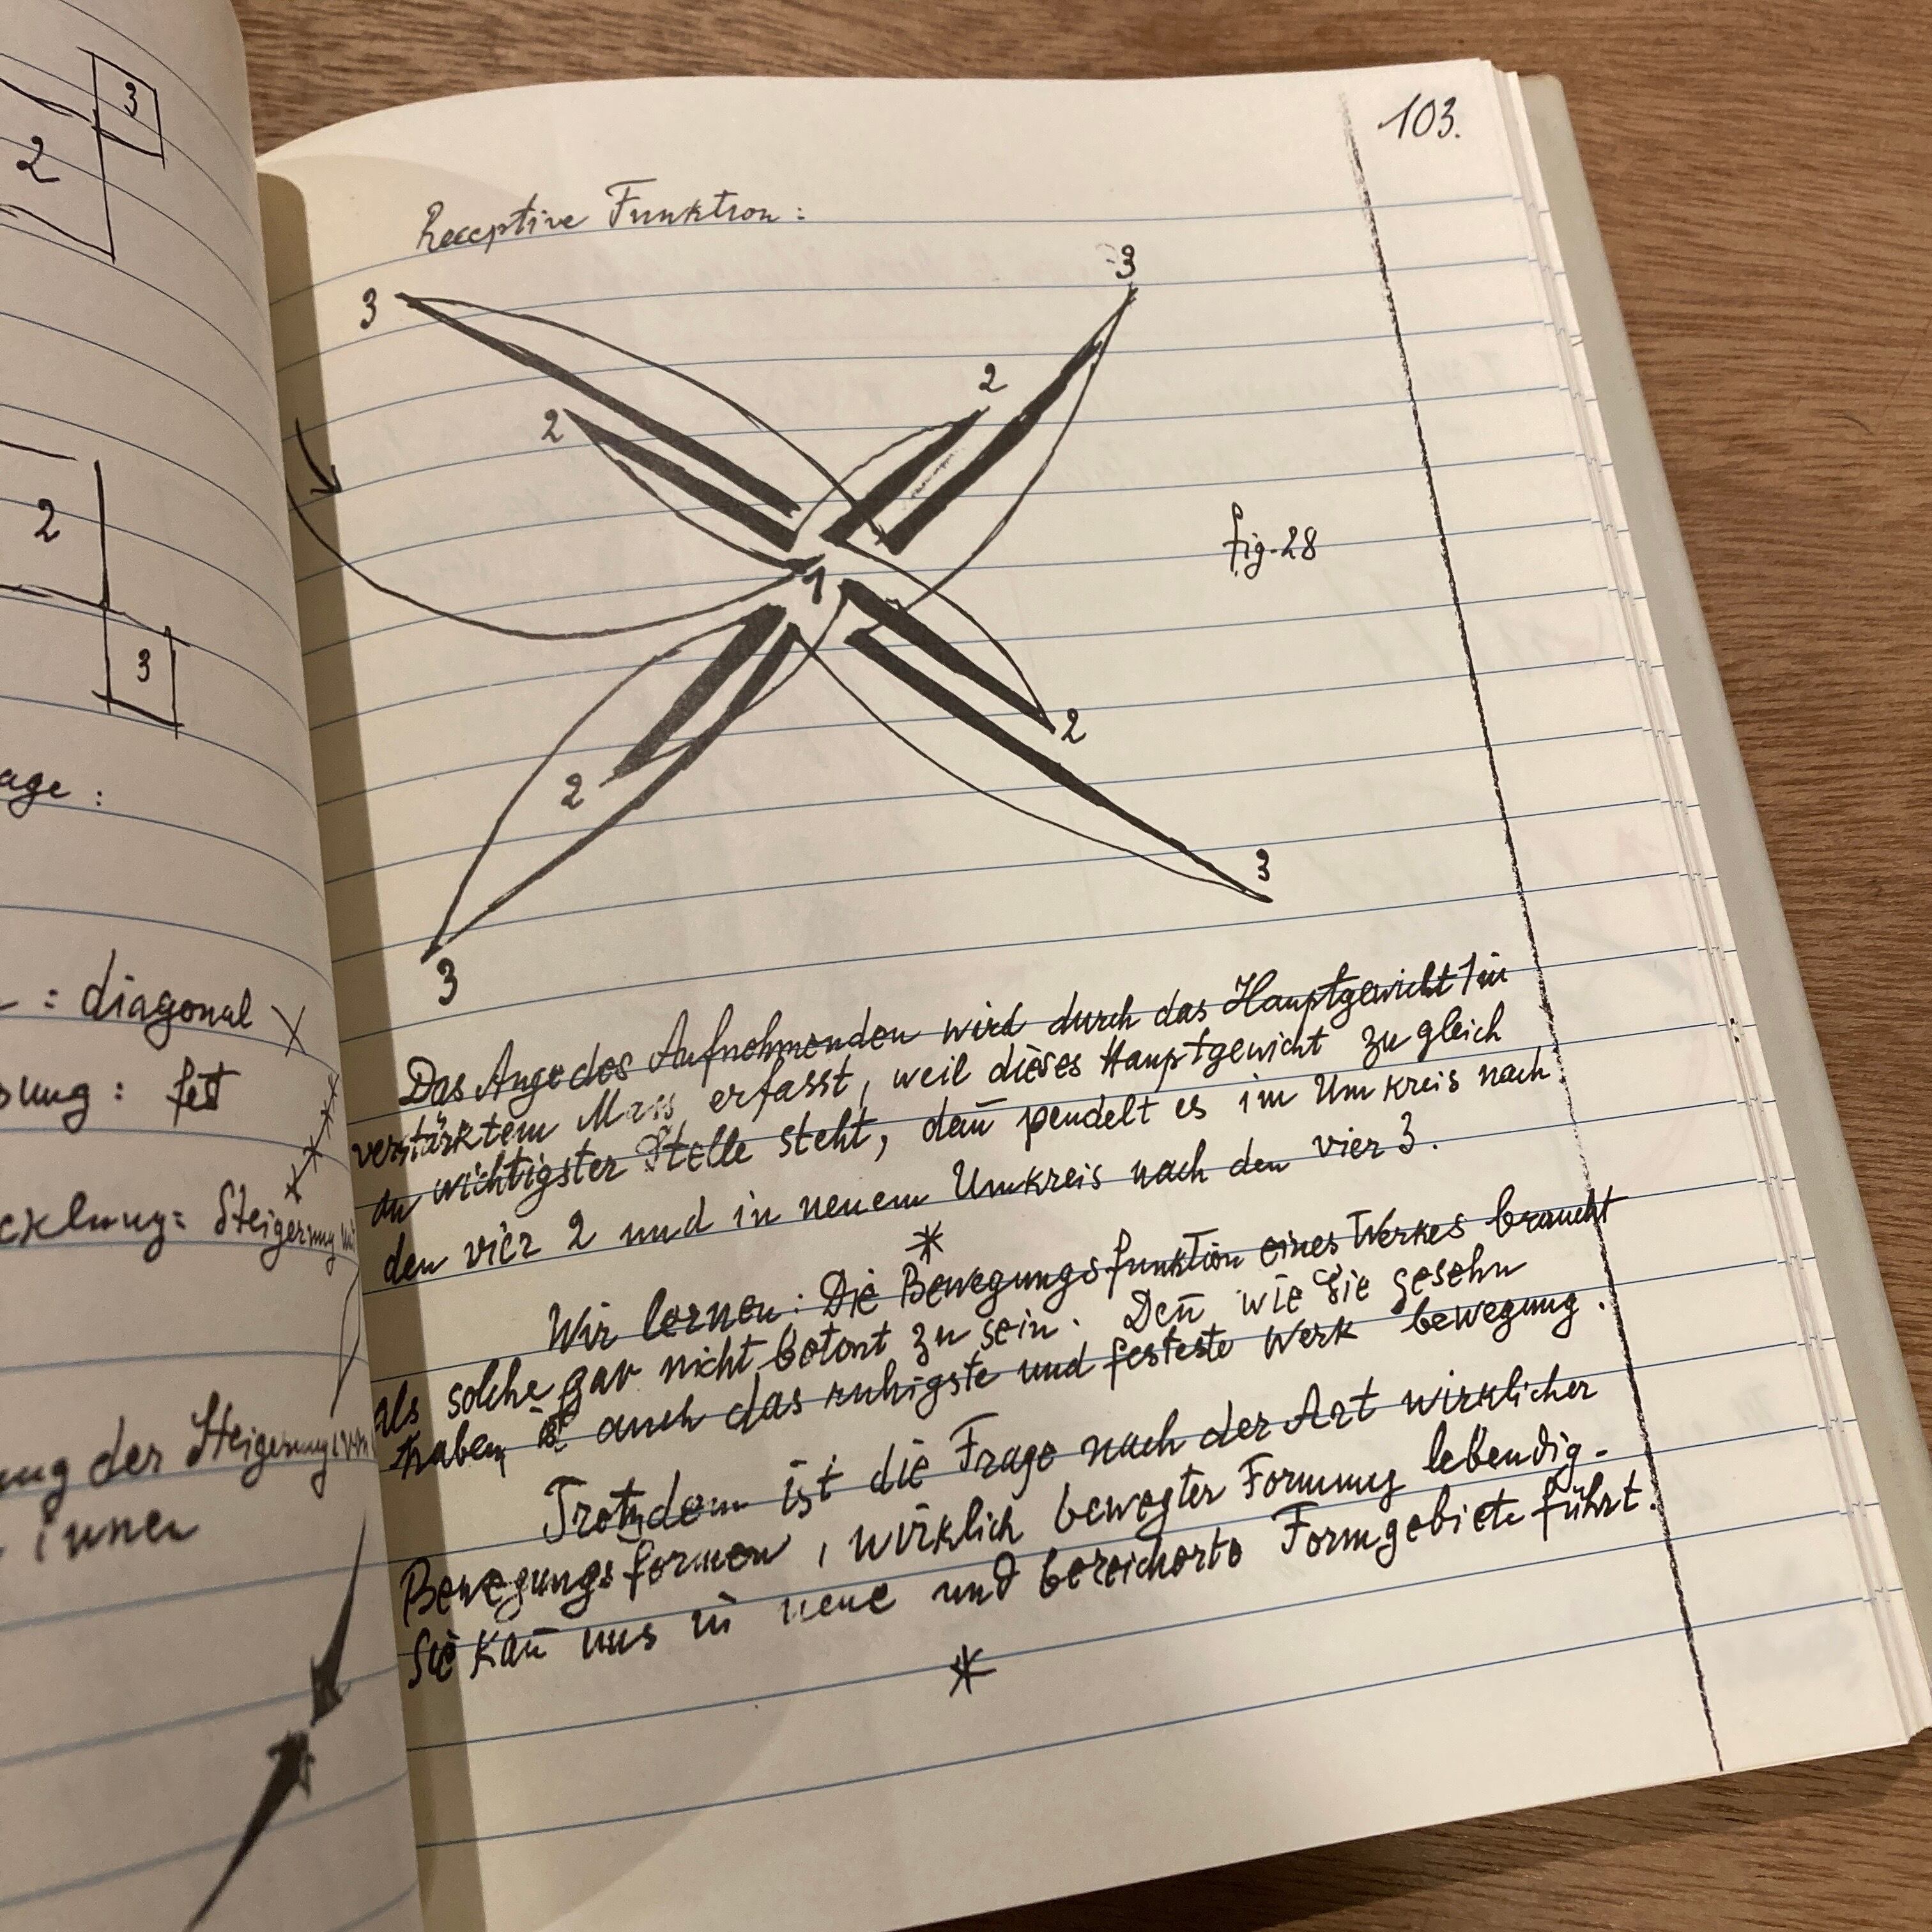 3
2
2
3
age :
: diagonal
sung : fest
cklung: Steigerung
ung der Steigerung
innen
103.
Receptive Funktion :
3
3
2
2
1
fig. 28
2
2
3
3
Das Auge des Aufnehmenden wird durch das Hauptgewicht 1 in
verstärktem Mass erfasst, weil dieses Hauptgewicht zu gleich
an wichtigster Stelle steht, dañ pendelt es im Umkreis nach
den vier 2 und in neuem Umkreis nach den vier 3.
*
Wir lernen: Die Bewegungsfunktion eines Werkes braucht
als solche gar nicht betont zu sein. Deñ wie Sie gesehn
haben, ist auch das ruhigste und festeste Werk bewegung.
Trotzdem ist die Frage nach der Art wirklicher
Bewegungsformen, wirklich bewegter Formung lebendig.
Sie kañ uns in neue und bereicherte Formgebiete führt.
*